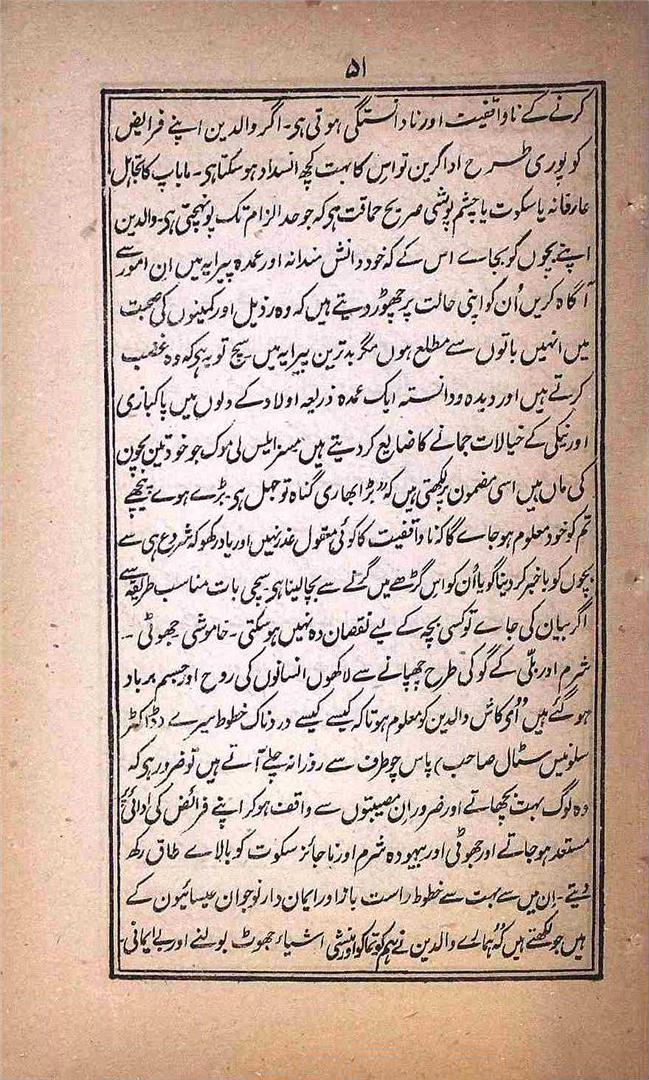 ۵۱
کرنے کے ناواقفیت اور نادانستگی ہوتی ہی۔ اگر والدین اپنے فرایض
کو پوری طرح ادا کرین تو اس کا بہت کچھ انسداد ہو سکتا ہی۔ ماباپ کا تجاہل
عارفانہ یا سکوت یا چشم پوشی صریح حماقت ہی کہ جو حد الزام تک پونہچتی ہی۔ والدین
اپنے بچوں کو بجاے اس کے کہ خود دانش مندانہ اور عمدہ پیرایہ میں ان امور سے
آگاہ کریں اُن کو اپنی حالت پر چھوڑ دیتے ہیں کہ وہ رذیل اور کمینوں کی صحبت
میں انہیں باتوں سے مطلع ہوں مگر بدترین پیرایہ میں سچ تو یہ ہی کہ وہ غضب
کرتے ہیں اور دیدہ و دانستہ ایک عمدہ ذریعہ اولاد کے دلوں میں پاکبازی
اور نیکی کے خیالات جمانے کا ضایع کر دیتے ہیں مسز ایلس لی موک جو خود تین بچون
کی ماں ہیں اسی مضمون پر لکھتی ہیں کہ ”بڑا بھاری گناہ تو جہل ہی۔ بڑے ہوے پیچھے
تم کو خود معلوم ہو جاے گا کہ ناواقفیت کا کوئی معقول عذر نہیں اور یاد رکھو کہ شروع ہی سے
بچوں کو باخبر کر دینا گویا اُن کو اس گڑھے میں گرنے سے بچا لینا ہی سچی بات مناسب طریقہ سے
اگر بیان کی جاے تو کسی بچہ کے لیے نقصان دہ نہیں ہو سکتی۔ خاموشی جھوٹی ۔۔
شرم اور بلّی کے گو کی طرح چھپانے سے لاکھوں انسانوں کی روح اور جسم برباد
ہو گئے ہیں“ اُی کاش والدین کو معلوم ہوتا کہ کیسے کیسے دردناک خطوط میرے (ڈاکٹر
سلونیس سٹال صاحب) پاس چوطرف سے روزانہ چلے آتے ہیں تو ضرور ہی کہ
وہ لوگ بہت پچھتاتے اور ضرور ان مصیبتوں سے واقف ہو کر اپنے فرائض کی ادائی پر
مستعد ہو جاتے اور جھوٹی اور بیہودہ شرم اور ناجائز سکوت کو بالاے طاق رکھ
دیتے۔ اِن میں سے بہت سے خطوط راست باز اور ایمان دار نوجوان عیسائیون کے
ہیں جو لکھتے ہیں کہ ”ہمارے والدین نے ہم کو تماکو اور منشی اشیاء جھوٹ بولنے اور بے ایمانی۔